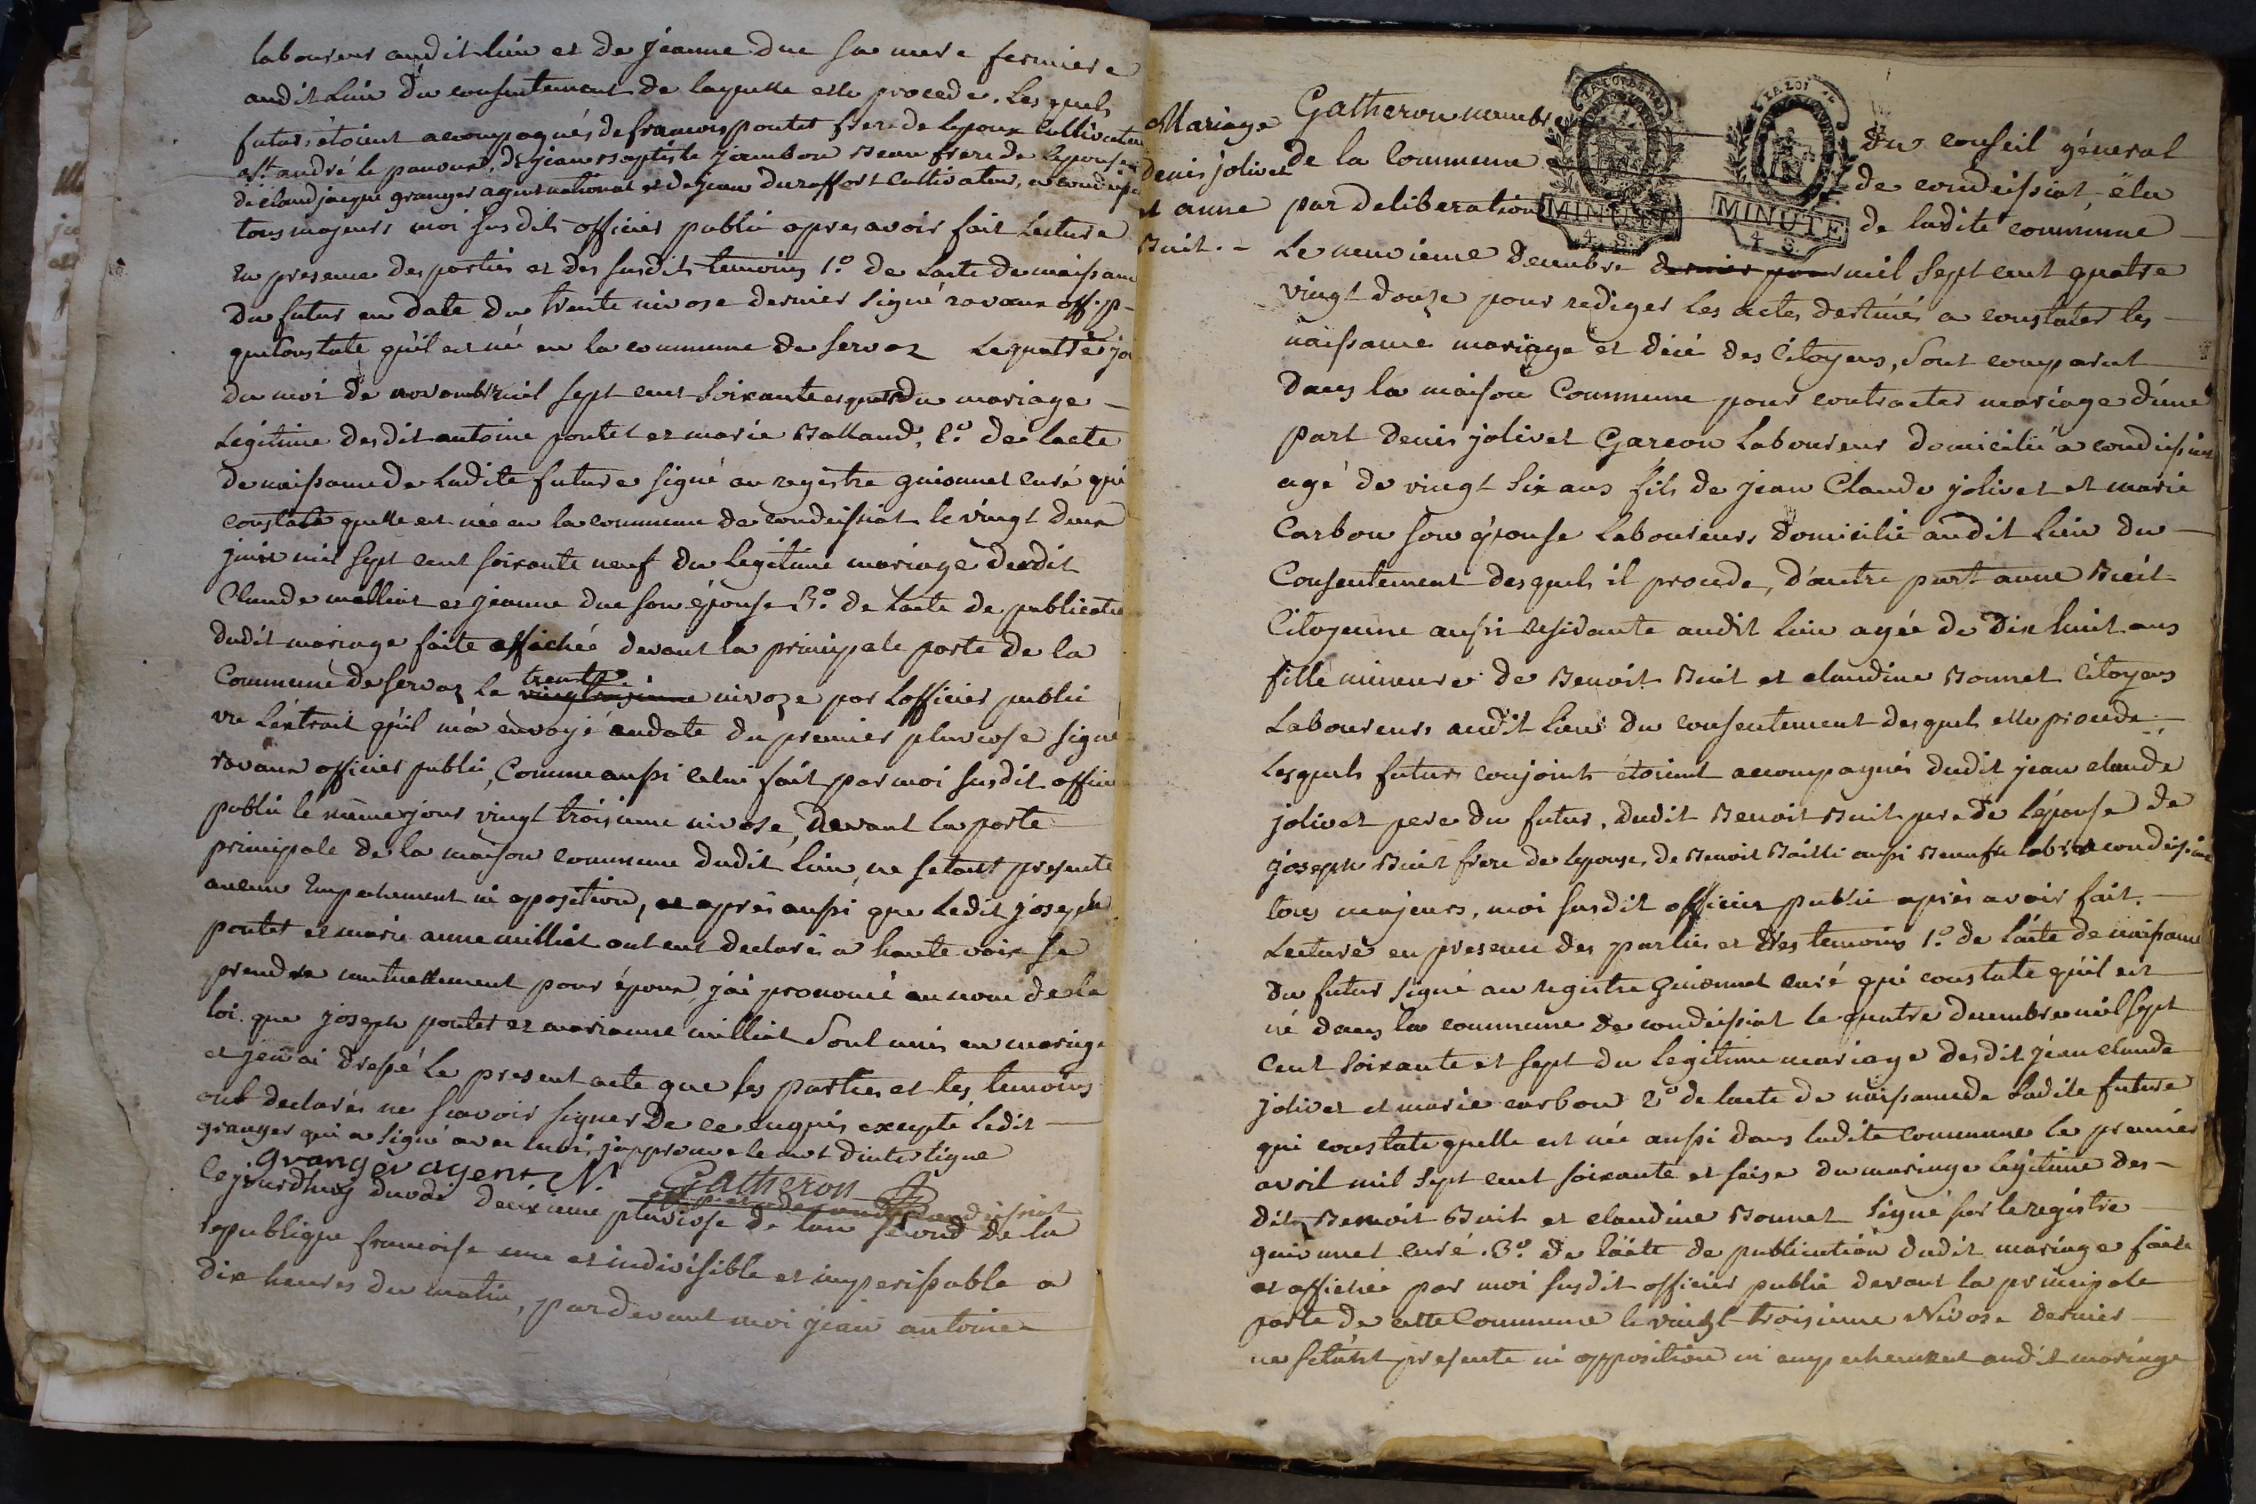 laboureur audit lieu et de jeanne duc sa mere fermiere
audit lieu du consentement de laquelle elle procede. Lesquels
futurs étoient acompagnés de francois poutet frere de lepoux Cultivateur
a st andré le panoux, de jean Baptiste jambon Beau frere de lepouse
de claud jacque granger agent national et de jean duraffort Cultivateur, a condeissiat
tous majeurs moi susdit officier public apres avoir fait lecture
en presence des parties et des susdits temoins 1.º de lacte de naissance
du futur en date du trente nivose dernier signé ravaux off. p.
qui Constate qu'il est né en la commune de servaz Le quatre jour
du moi de novembre mil sept cent soixante et quatre du mariage
Legitime desdit antoine poutet et marie Balland, 2.º de lacte
de naissance de Ladite future signé au registre guionnet curé qui
constate quelle est née en la commune de condeissiat le vingt deux
juin mil sept cent soixante neuf du legitime mariage dudit
Claude milliat et jeanne duc son épouse 3.º de lacte de publication
dudit mariage faite affichée devant la principale porte de la
Commune de servaz le trente nivoze par Lofficier public
vu L'extrait qu'il m'a envoyé en date du premier pluviose signé
ravaux officier public, Comme aussi celui fait par moi susdit officier
public le même jour vingt troisieme nivose, devant la porte
principale de la maison commune dudit lieu, ne setant presenté
aucun Empechement ni oposition, et après aussi que Ledit joseph
poutet et marie anne milliat ont eut declarés a haute voix se
prendre mutuellement pour époux j'ai prononcé au nom de la
loi que joseph poutet et marianne milliat Sont unis en mariage
et j'en ai dressé Le present acte que les parties et les temoins
ont declarés ne scavoir signer de ce enquis excepté ledit
granger qui a signé avec moi, japprouve le mot d'interligne
Granger agent N.l Gatheron
Cejourdhuy duodi deuxieme pluviose de lan second de la
republique francoise une et indivisible et imperissable a
dix heures du matin, pardevant moi jean antoine
Mariage
denis jolivet
et anne
Buit.
Gatheron membre du conseil géneral
de la Commune de condeissiat, élu
par deliberation de ladite commune
Le neuvieme decembre dernier pour mil sept cent quatre
vingt douze pour rediger les actes destinés a constater les
naissance mariage et décé des Citoyens, sont comparut
dans la maison Commune pour contracter mariage d'une
part denis jolivet Garcon laboureur domicilié a condeissiat
agé de vingt six ans fils de jean Claude jolivet et marie
Carbon son épouse laboureurs domicilié audit lieu du
Consentement desquels il procede, d'autre part anne Buit
Citoyenne aussi residante audit lieu agée de dix huit ans
fille mineure de Benoit Buit et claudine Bonnet Citoyens
Laboureurs audit lieu du consentement desquels elle procede
Lesquels futurs conjoints étoient accompagnés dudit jean claude
jolivet pere du futur, dudit Benoit Buit pere de l'épouse de
joseph Buit frere de lepouse, de Benoit Bailli aussi a condeissiat
tous majeurs, moi susdit officier public après avoir fait
Lecture en presence des parties et des temoins 1.º de l'acte de naissance
du futur signé au registre Guionnet curé qui constate qu'il est
né dans la commune de condeissiat le quatre decembre mil sept
cent soixante et sept du legitime mariage desdit jean claude
jolivet et marie carbon 2º de lacte de naissance de ladite future
qui constate quelle est née aussi dans ladite Commune le premier
avril mil sept cent soixante et seise du mariage legitime des-
dits Benoit Buit et claudine Bonnet signé sur le registre
guionnet curé. 3.º de l'acte de publication dudit mariage faite
et affichée par moi susdit officier public devant la principale
porte de cette Commune le vingt troisieme Nivose dernier
ne setant presenté ni opposition ni empechement audit mariage
LA LOI
MINUTE
4 S.
MINUTE
4 S.